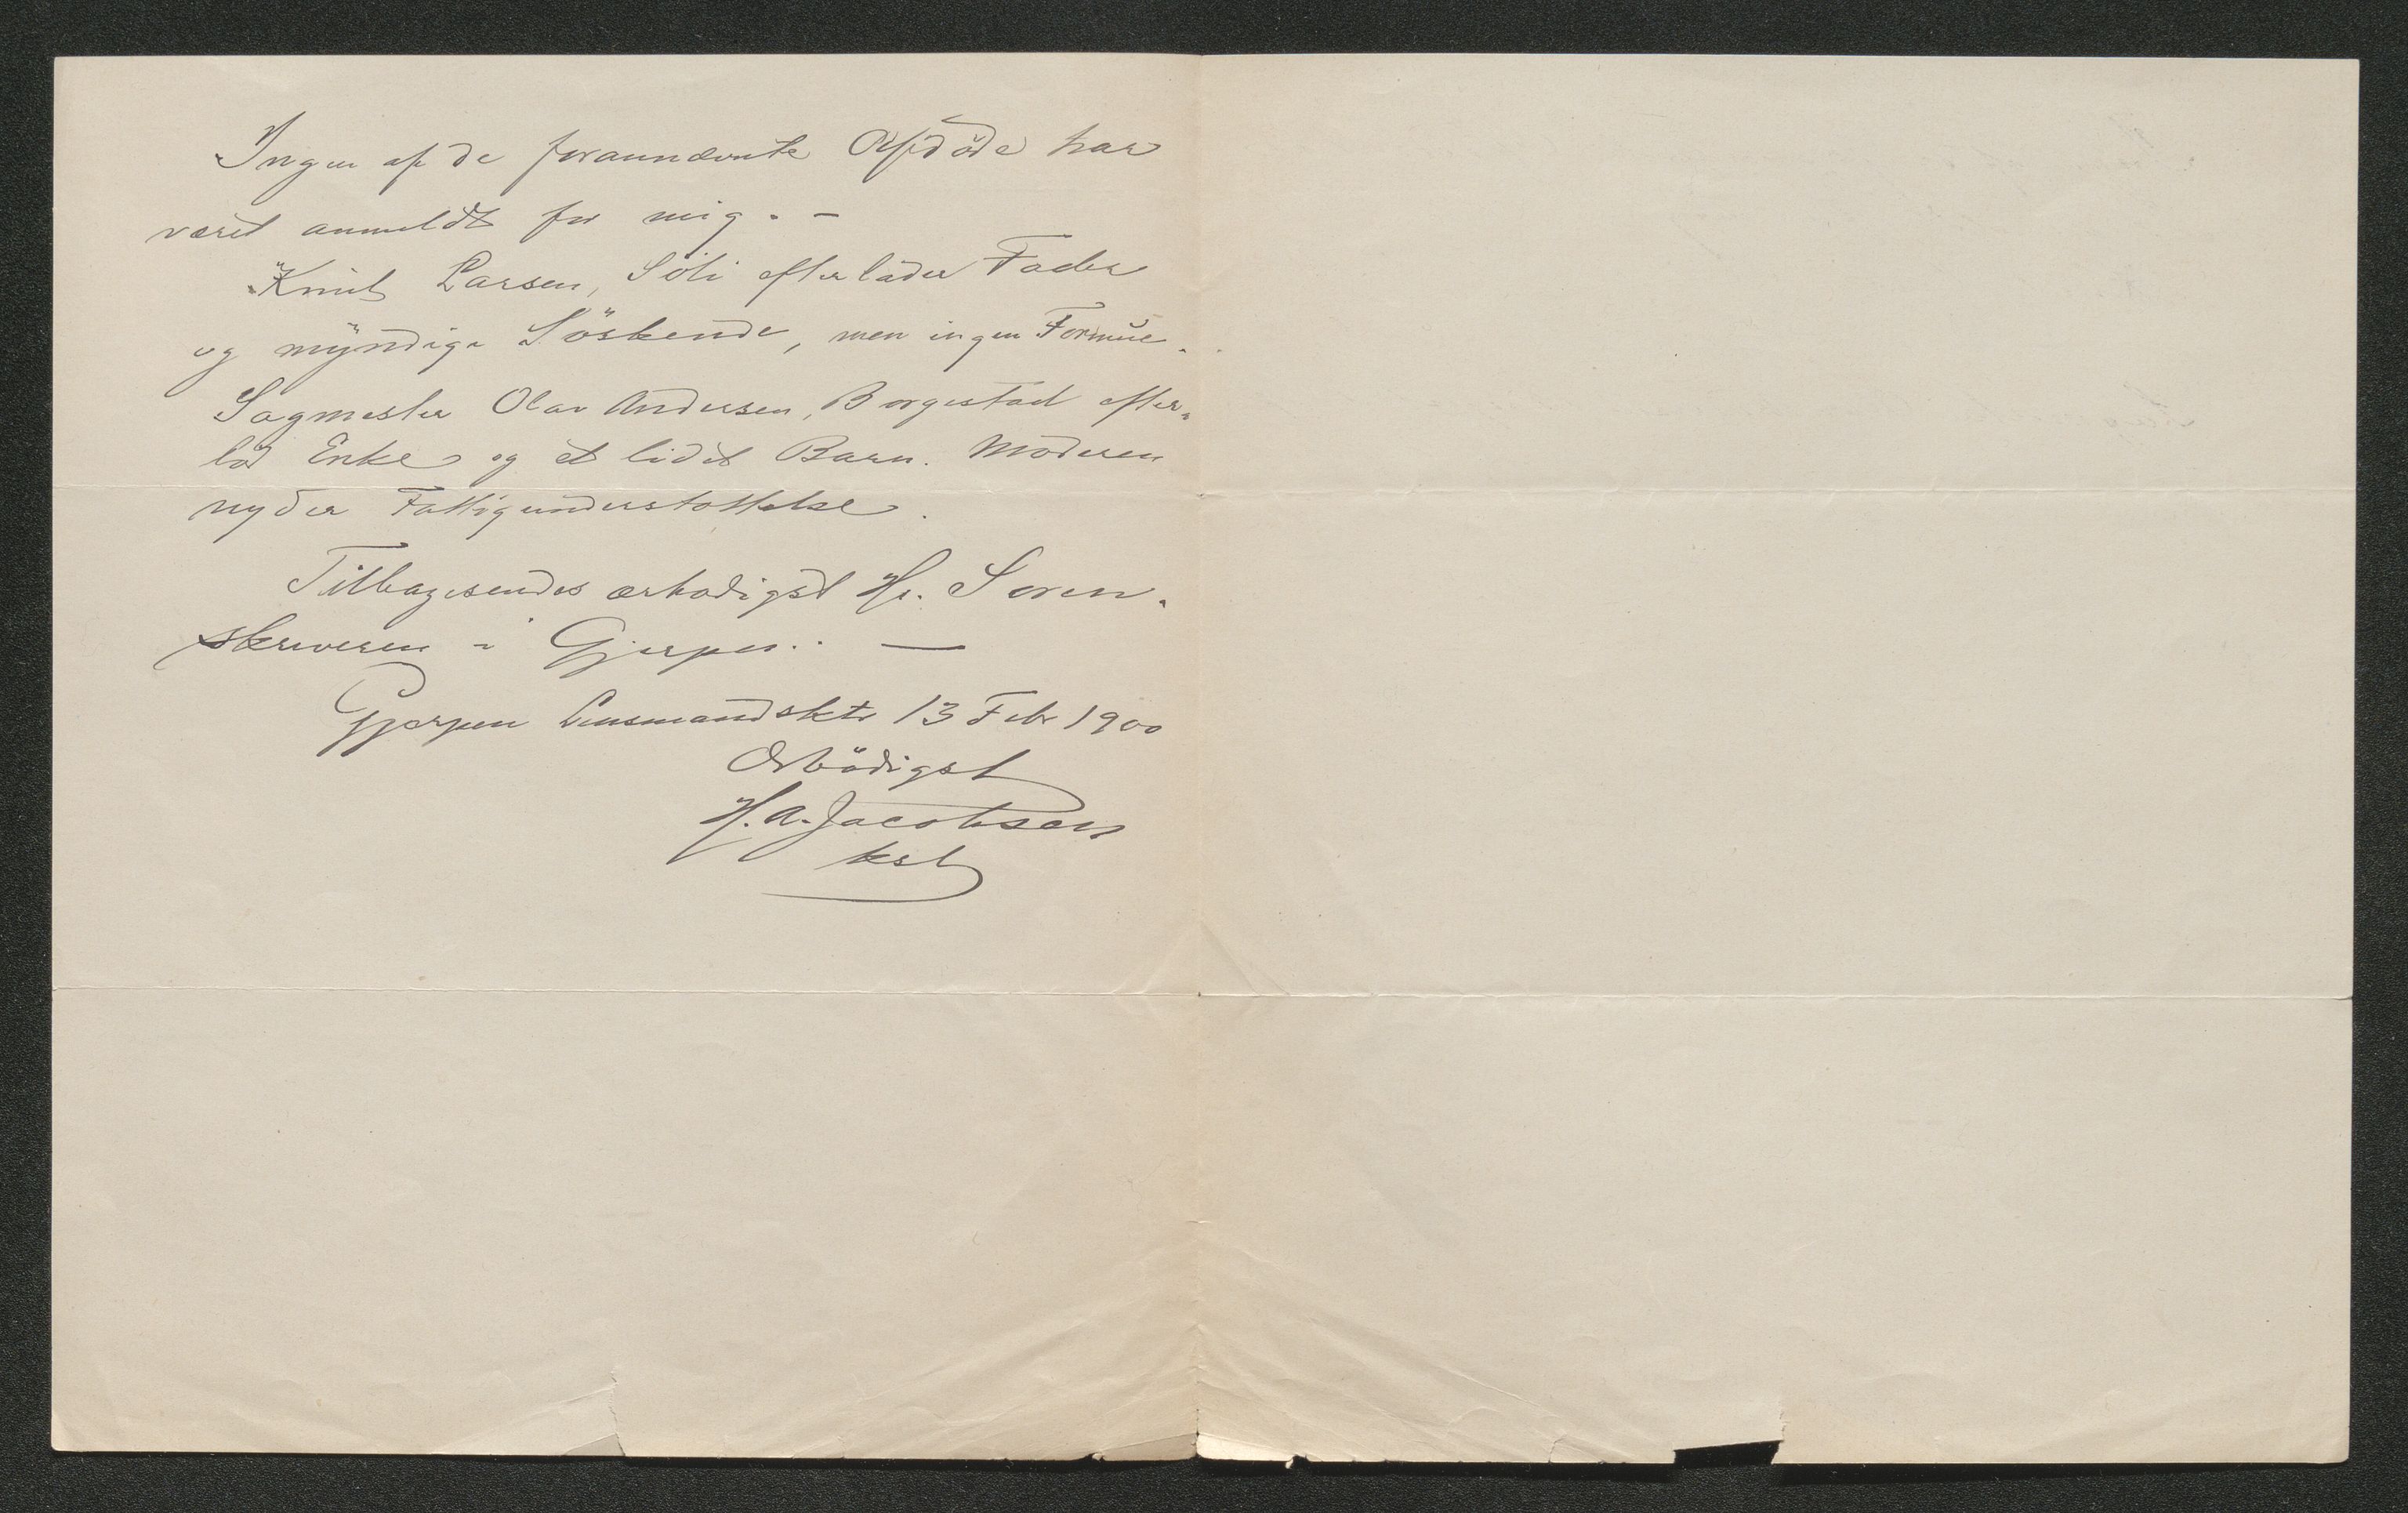 Ingen af de forannævnte Afdöde har
været anmeldt for mig. -
Knut Larsen, Söli efterlader Fader
og myndige Söskende, men ingen Formue.
Sagmester Olav Andersen, Borgestad efter-
lod Enke og et lidet Barn. Moderen
nyder Fattigunderstøttelse.
Tilbagesendes ærbødigst Hr. Soren-
skriveren i Gjerpen. —
Gjerpen Lensmandsktr 13 Febr 1900
Ærbödigst
H. A. Jacobsen
kst